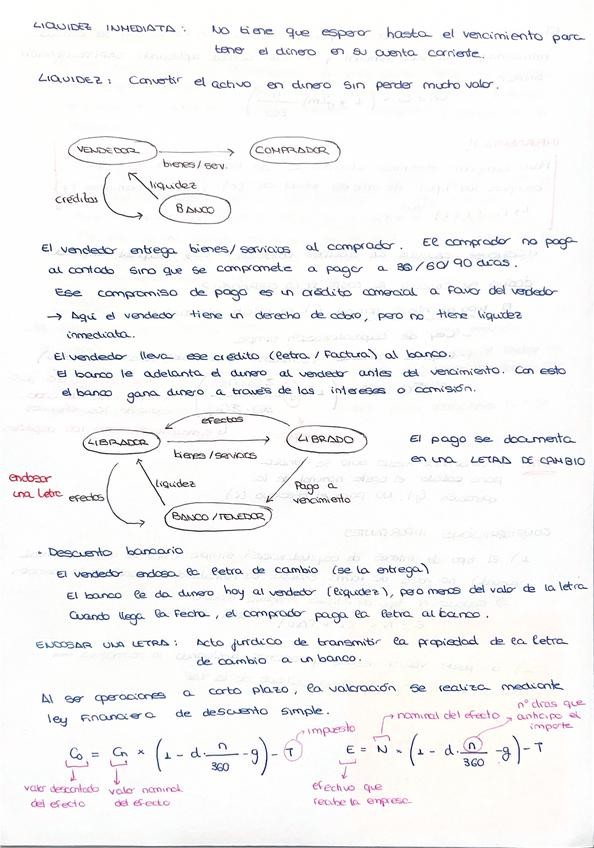 LIQUIDEZ INMEDIATA: No tiene que esperar hasta el vencimiento para
tener el dinero en su cuenta corriente.
LIQUIDEZ: Convertir el activo en dinero sin perder mucho valor.
VENDEDOR
COMPRADOR
bienes/serv.
liquidez
créditos
BANCO
El vendedor entrega bienes/servicios al comprador. El comprador no paga
al contado sino que se compromete a pagar a 30/60/90 días.
Ese compromiso de pago es un crédito comercial a favor del vendedor
→ Aquí el vendedor tiene un derecho de cobro, pero no tiene liquidez
inmediata.
El vendedor lleva ese crédito (letra / factura) al banco.
El banco le adelanta el dinero al vendedor antes del vencimiento. Con esto
el banco gana dinero a través de los intereses o comisión.
efectos
LIBRADOR
LIBRADO
bienes/servicios
El pago se documenta
en una LETRA DE CAMBIO
endosar
una letra
efectos
liquidez
Pago a
vencimiento
BANCO/TENEDOR
· Descuento bancario
El vendedor endosa la letra de cambio (se la entrega)
El banco le da dinero hoy al vendedor (liquidez), pero menos del valor de la letra
Cuando llega la fecha, el comprador paga la letra al banco.
ENDOSAR UNA LETRA: Acto jurídico de transmitir la propiedad de la letra
de cambio a un banco.
Al ser operaciones a corto plazo, la valoración se realiza mediante
ley financiera de descuento simple.
impuesto
nominal del efecto
nº días que
anticipo el
importe
C₀ = Cn × (1 - d · n/360 - g) - T
E = N × (1 - d · n/360 - g) - T
valor descontado
del efecto
valor nominal
del efecto
efectivo que
recibe la empresa